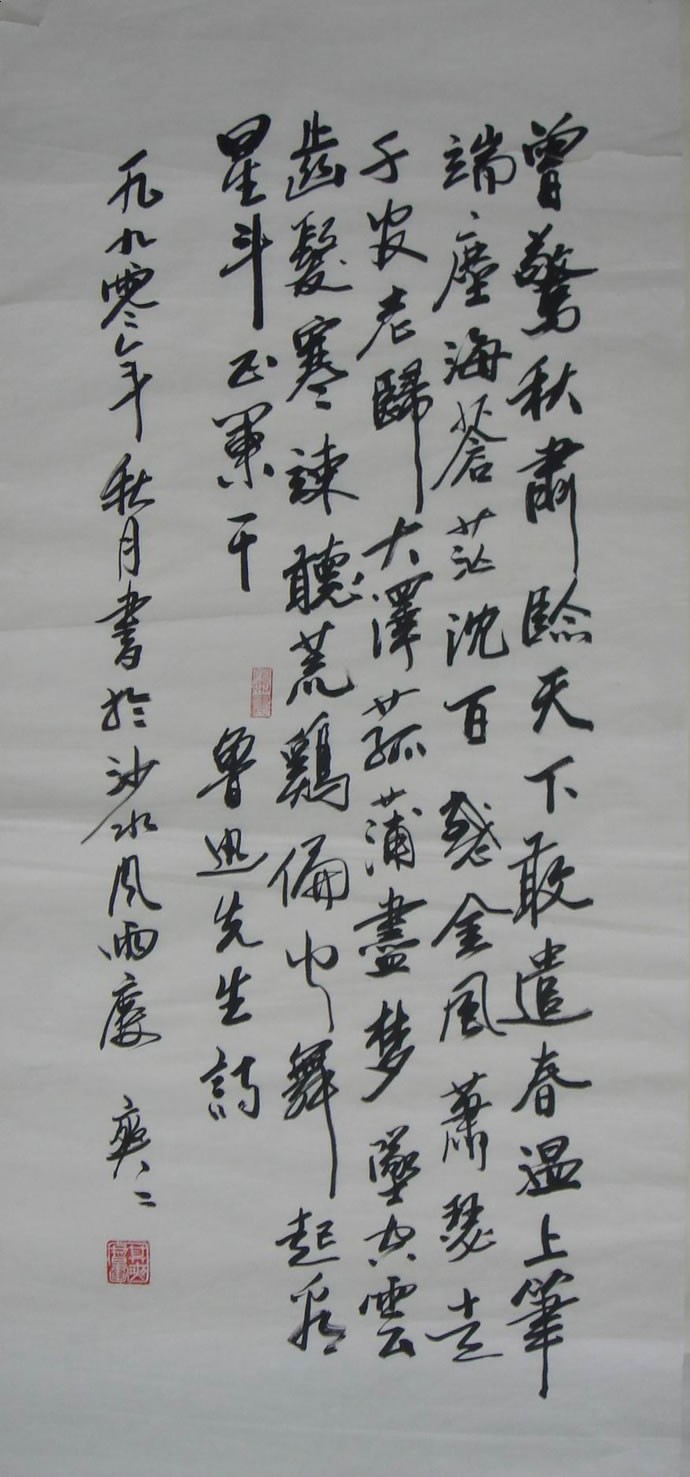 曾驚秋肅臨天下敢遣春温上筆
端塵海蒼茫沈百感金風蕭瑟走
千官老歸大澤菰蒲盡梦墜空雲
齒髮寒竦聽荒鷄偏舞起看
星斗正闌干 魯迅先生詩
一九九零年秋月書於沙水風雨廔